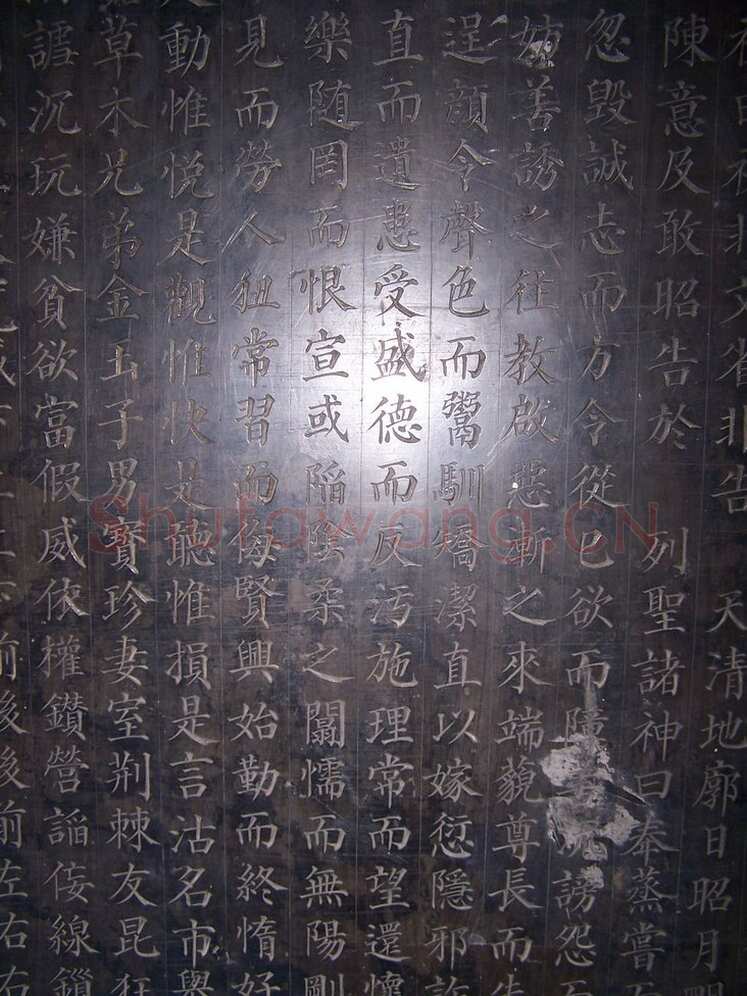 非文省非告 天清地廓日昭月
陳意及敢昭告於 列聖諸神曰奉蒸嘗
忽毀誠志而方令從己欲而 謗怨
善誘之往教啟惡漸之來端藐尊長而
逞顏令聲色而鬻馴矯潔直以嫁愆隱邪
直而遺患受盛德而反汚施理常而望還懷
樂隨罔而恨宣或陷陰柔之闒懦而無陽剛
見而勞人狃常習而侮賢興始勤而終惰好
動惟悅是觀惟快是聽惟損是言沽名市
草木兄弟金玉子男寳珍妻室荆棘友昆
謔沉玩嫌貧欲富假威依權鑽營諂佞線鎖
前後後前左右右
Shufawang.CN